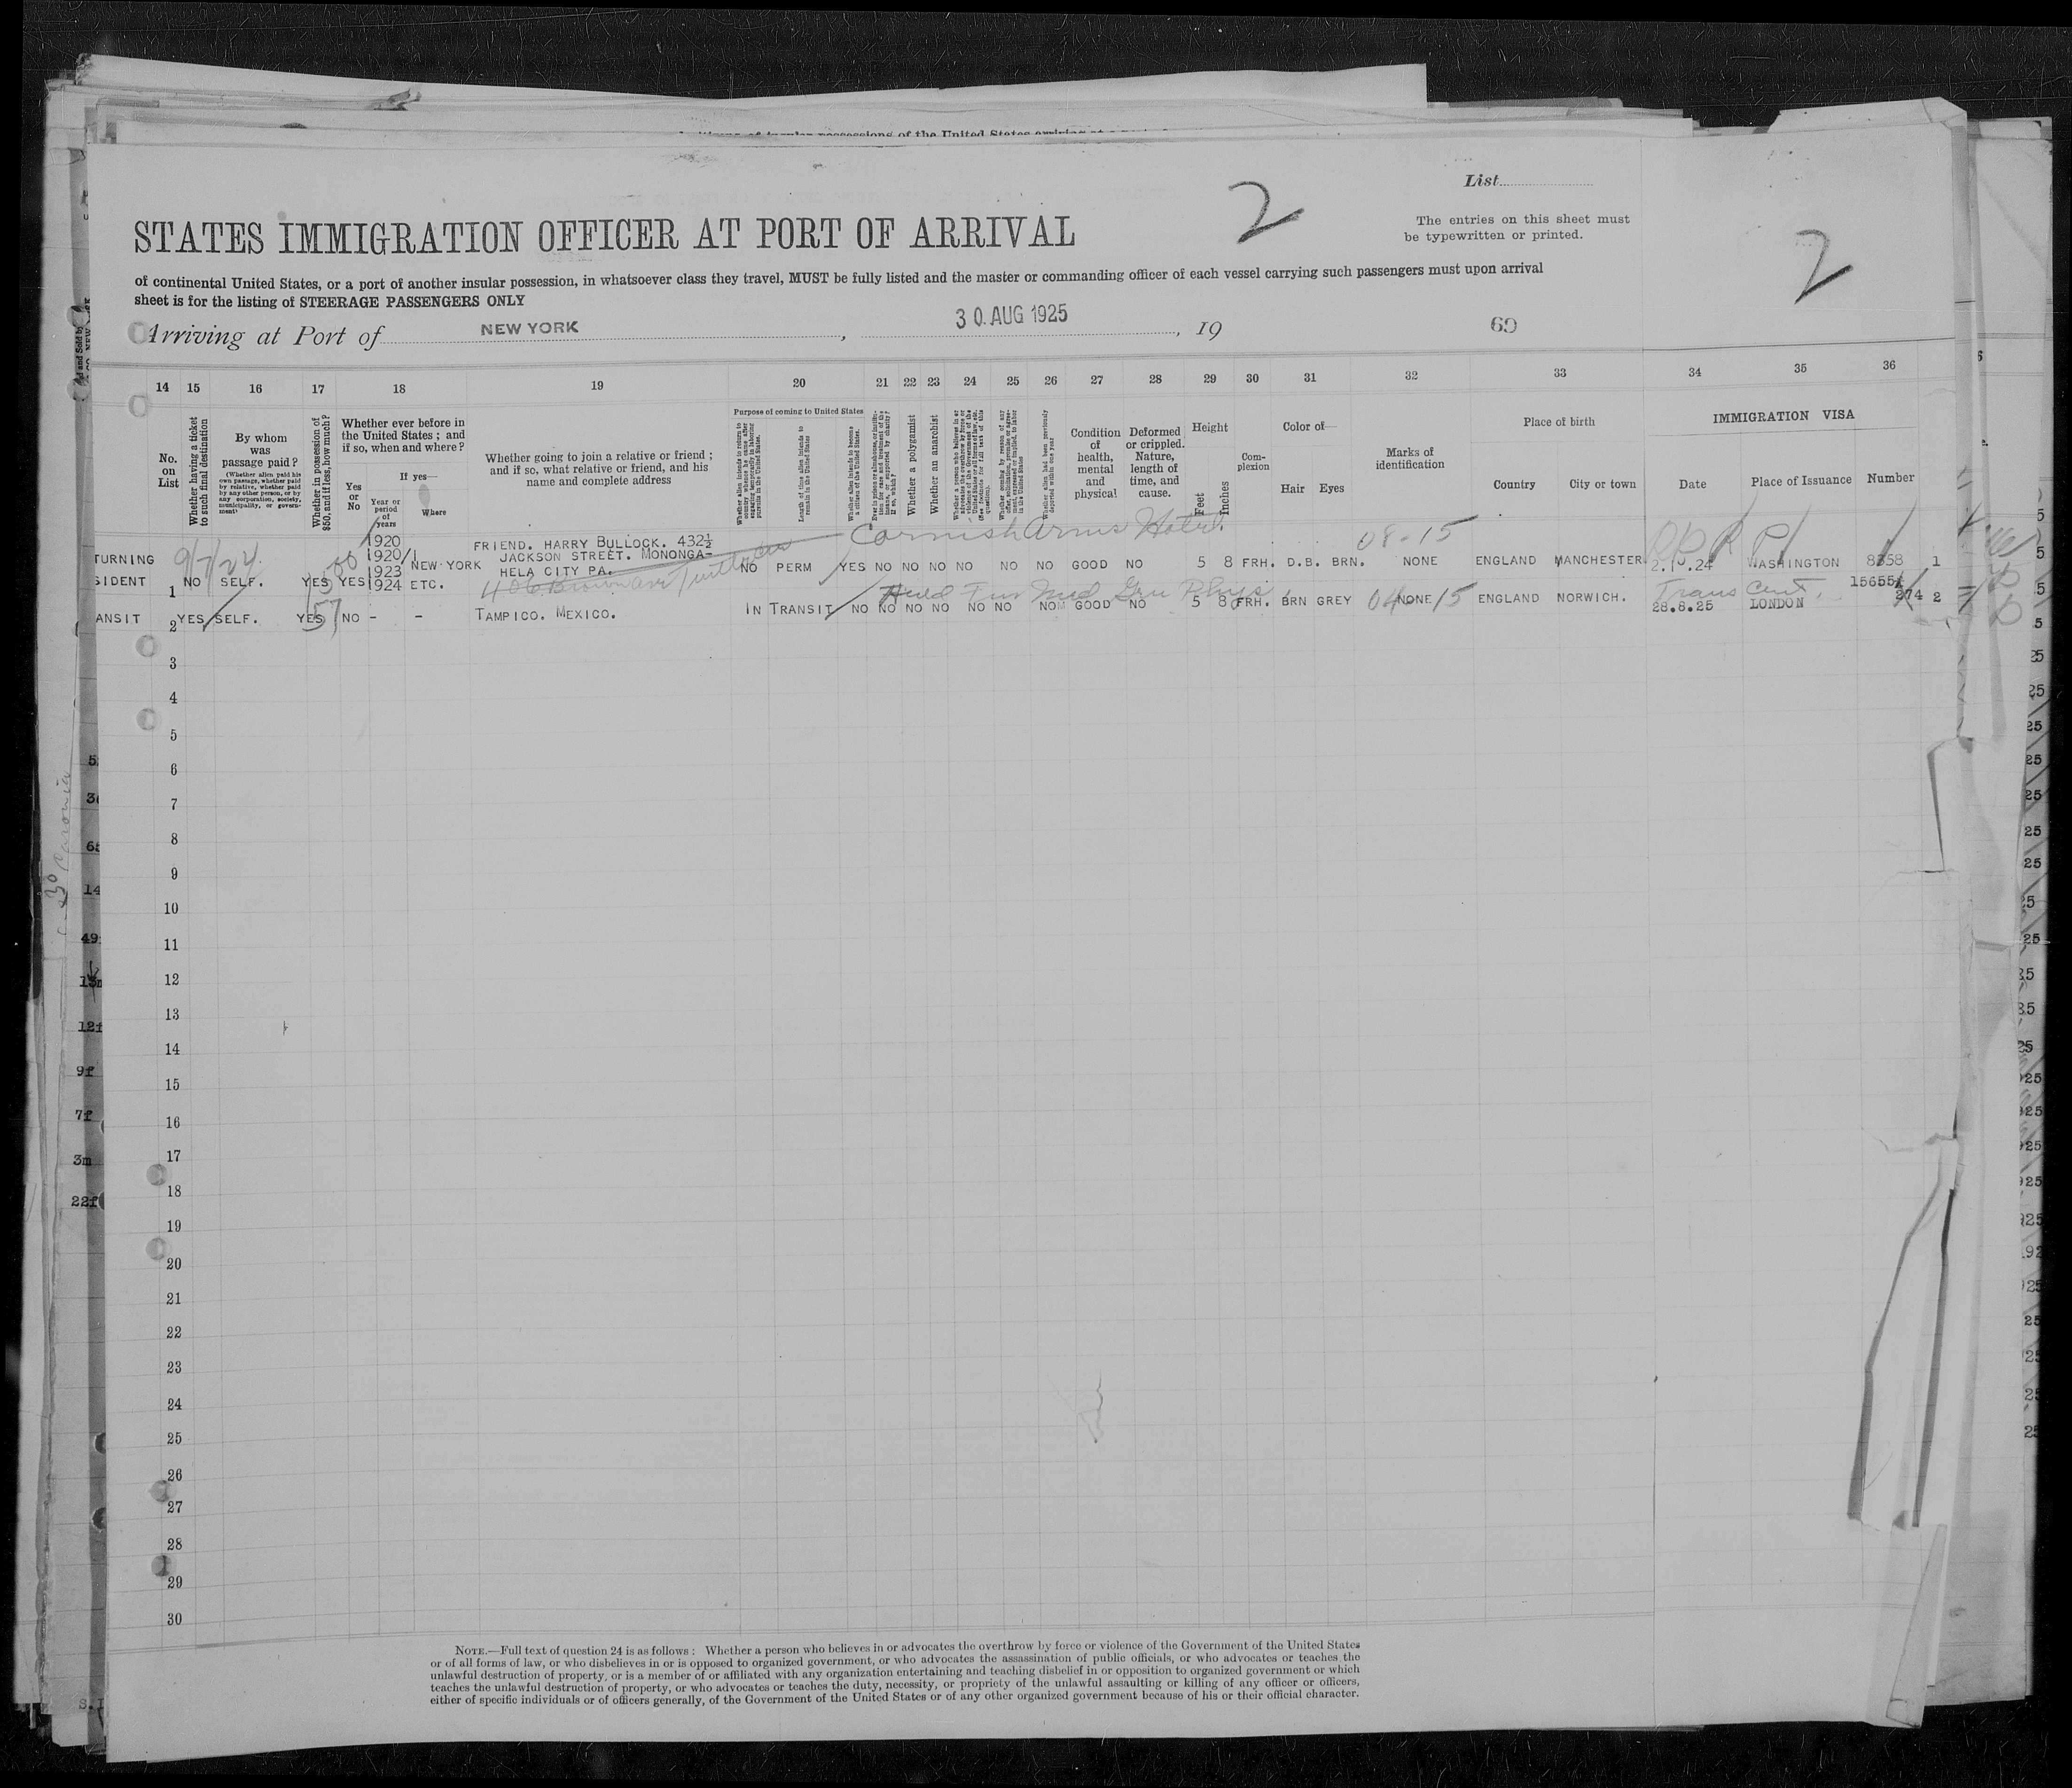 List
2
The entries on this sheet must
be typewritten or printed.
2
STATES IMMIGRATION OFFICER AT PORT OF ARRIVAL
of continental United States, or a port of another insular possession, in whatsoever class they travel, MUST be fully listed and the master or commanding officer of each vessel carrying such passengers must upon arrival
sheet is for the listing of STEERAGE PASSENGERS ONLY
Arriving at Port of NEW YORK , 30. AUG 1925 , 19 69
14 15 16 17 18 19 20 21 22 23 24 25 26 27 28 29 30 31 32 33 34 35 36
No. on List
Whether having a ticket to such final destination
By whom was passage paid?
(Whether alien paid his own passage, whether paid by relative, whether paid by any other person, or by any corporation, society, municipality, or government)
Whether in possession of $50, and if less, how much?
Whether ever before in the United States; and if so, when and where?
Yes or No
If yes—
Year or period of years
Where
Whether going to join a relative or friend; and if so, what relative or friend, and his name and complete address
Purpose of coming to United States
Whether alien intends to return to country whence he came after engaging temporarily in laboring pursuits in the United States.
Length of time alien intends to remain in the United States
Whether alien intends to become a citizen of the United States.
Whether a polygamist
Whether an anarchist
Condition of health, mental and physical
Deformed or crippled. Nature, length of time, and cause.
Height
Feet
Inches
Complexion
Color of—
Hair Eyes
Marks of identification
Place of birth
Country City or town
IMMIGRATION VISA
Date Place of Issuance Number
Cornish Arms Hotel.
08-15
TURNING
SIDENT 1 NO 9/7/24 SELF. YES 50 YES 1920 1920/1 1923 1924 NEW YORK ETC.
FRIEND. HARRY BULLOCK. 432½
JACKSON STREET. MONONGA-
HELA CITY PA.
NO PERM YES NO NO NO NO NO NO GOOD NO 5 8 FRH. D.B. BRN. NONE ENGLAND MANCHESTER WASHINGTON 8358 1
156551
ANSIT 2 YES SELF. YES 57 NO - - TAMPICO. MEXICO. IN TRANSIT NO NO NO NO NO NO NO GOOD NO 5 8 FRH. BRN GREY NONE 04 15 ENGLAND NORWICH. Trans Cert. 28.8.25 LONDON 274 2
3
4
5
6
7
8
9
10
11
12
13
14
15
16
17
18
19
20
21
22
23
24
25
26
27
28
29
30
NOTE.—Full text of question 24 is as follows: Whether a person who believes in or advocates the overthrow by force or violence of the Government of the United States
or of all forms of law, or who disbelieves in or is opposed to organized government, or who advocates the assassination of public officials, or who advocates or teaches the
unlawful destruction of property, or is a member of or affiliated with any organization entertaining and teaching disbelief in or opposition to organized government or which
teaches the unlawful destruction of property, or who advocates or teaches the duty, necessity, or propriety of the unlawful assaulting or killing of any officer or officers,
either of specific individuals or of officers generally, of the Government of the United States or of any other organized government because of his or their official character.